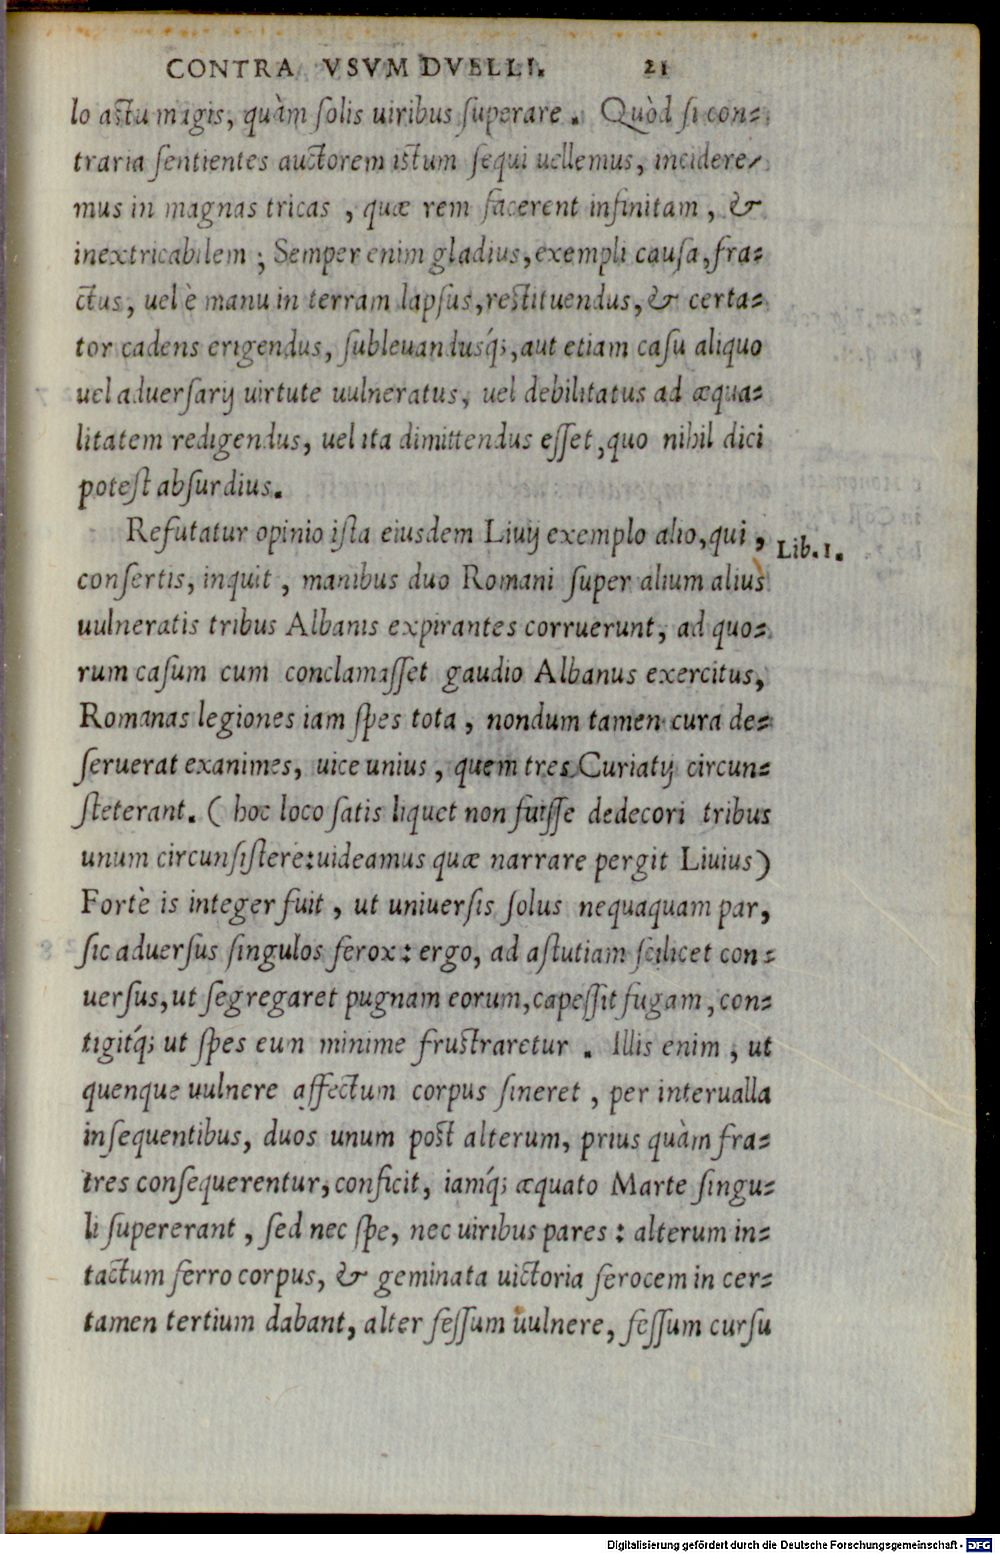 CONTRA VSVM DVELLI. 21
lo astu magis, quàm ſolis uiribus ſuperare. Quòd ſi con-
traria ſentientes auctorem istum ſequi uellemus, incidere-
mus in magnas tricas, quæ rem facerent infinitam, &
inextricabilem; Semper enim gladius, exempli cauſa, fra-
ctus, uel è manu in terram lapſus, restituendus, & certa-
tor cadens erigendus, ſubleuandusq́;, aut etiam caſu aliquo
uel aduerſarij uirtute uulneratus, uel debilitatus ad æqua-
litatem redigendus, uel ita dimittendus eſſet, quo nihil dici
poteſt abſurdius.
Refutatur opinio iſta eiusdem Liuij exemplo alio, qui,
Lib. 1.
conſertis, inquit, manibus duo Romani ſuper alium alius
uulneratis tribus Albanis expirantes corruerunt, ad quo-
rum caſum cum conclamaſſet gaudio Albanus exercitus,
Romanas legiones iam ſpes tota, nondum tamen cura de-
ſeruerat exanimes, uice unius, quem tres Curiatij circun-
ſteterant. (hoc loco ſatis liquet non fuiſſe dedecori tribus
unum circunſiſtere: uideamus quæ narrare pergit Liuius)
Fortè is integer fuit, ut uniuerſis ſolus nequaquam par,
ſic aduerſus ſingulos ferox: ergo, ad aſtutiam ſcilicet con-
uerſus, ut ſegregaret pugnam eorum, capeſſit fugam, con-
tigitq́; ut ſpes eun minime frustraretur. Illis enim, ut
quenque uulnere affectum corpus ſineret, per interualla
inſequentibus, duos unum post alterum, prius quàm fra-
tres conſequerentur, conficit, iamq́; æquato Marte ſingu-
li ſupererant, ſed nec ſpe, nec uiribus pares: alterum in-
tactum ferro corpus, & geminata uictoria ferocem in cer-
tamen tertium dabant, alter feſſum uulnere, feſſum curſu
Digitalisierung gefördert durch die Deutsche Forschungsgemeinschaft - DFG